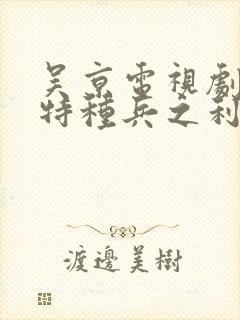 吴京電視劇
特種兵之利
渡邊美樹